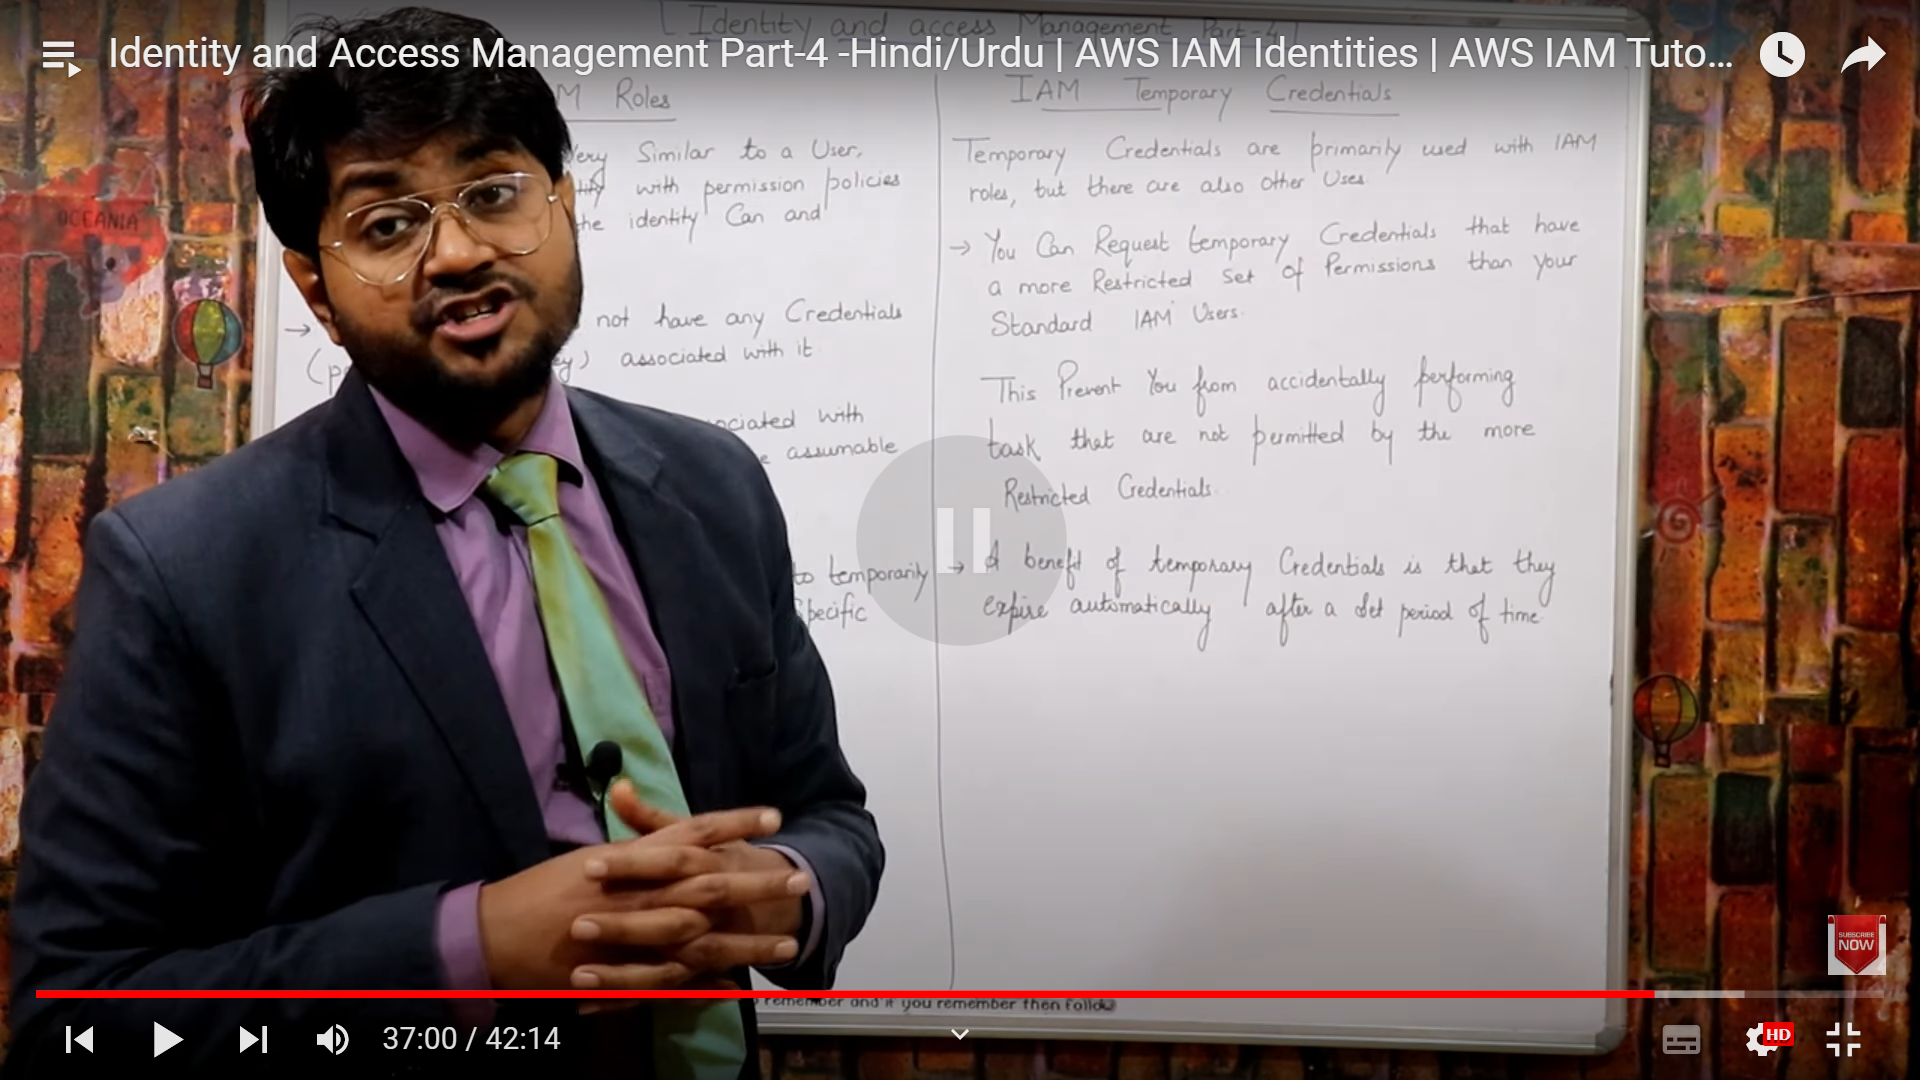 [ Identity and access Management Part-4 ]
Identity and Access Management Part-4 -Hindi/Urdu | AWS IAM Identities | AWS IAM Tuto...
OCEANIA
M Roles
Very Similar to a User,
with permission policies
the identity Can and
→
not have any Credentials
associated with it
ociated with
assumable
to temporarily
Specific
IAM Temporary Credentials
Temporary Credentials are primarily used with IAM
roles, but there are also other Uses.
→ You Can Request temporary Credentials that have
a more Restricted Set of Permissions than your
Standard IAM Users.
This Prevent You from accidentally performing
task that are not permitted by the more
Restricted Credentials.
→ A benefit of temporary Credentials is that they
expire automatically after a set period of time.
SUBSCRIBE
NOW
remember and if you remember then follow
37:00 / 42:14
HD